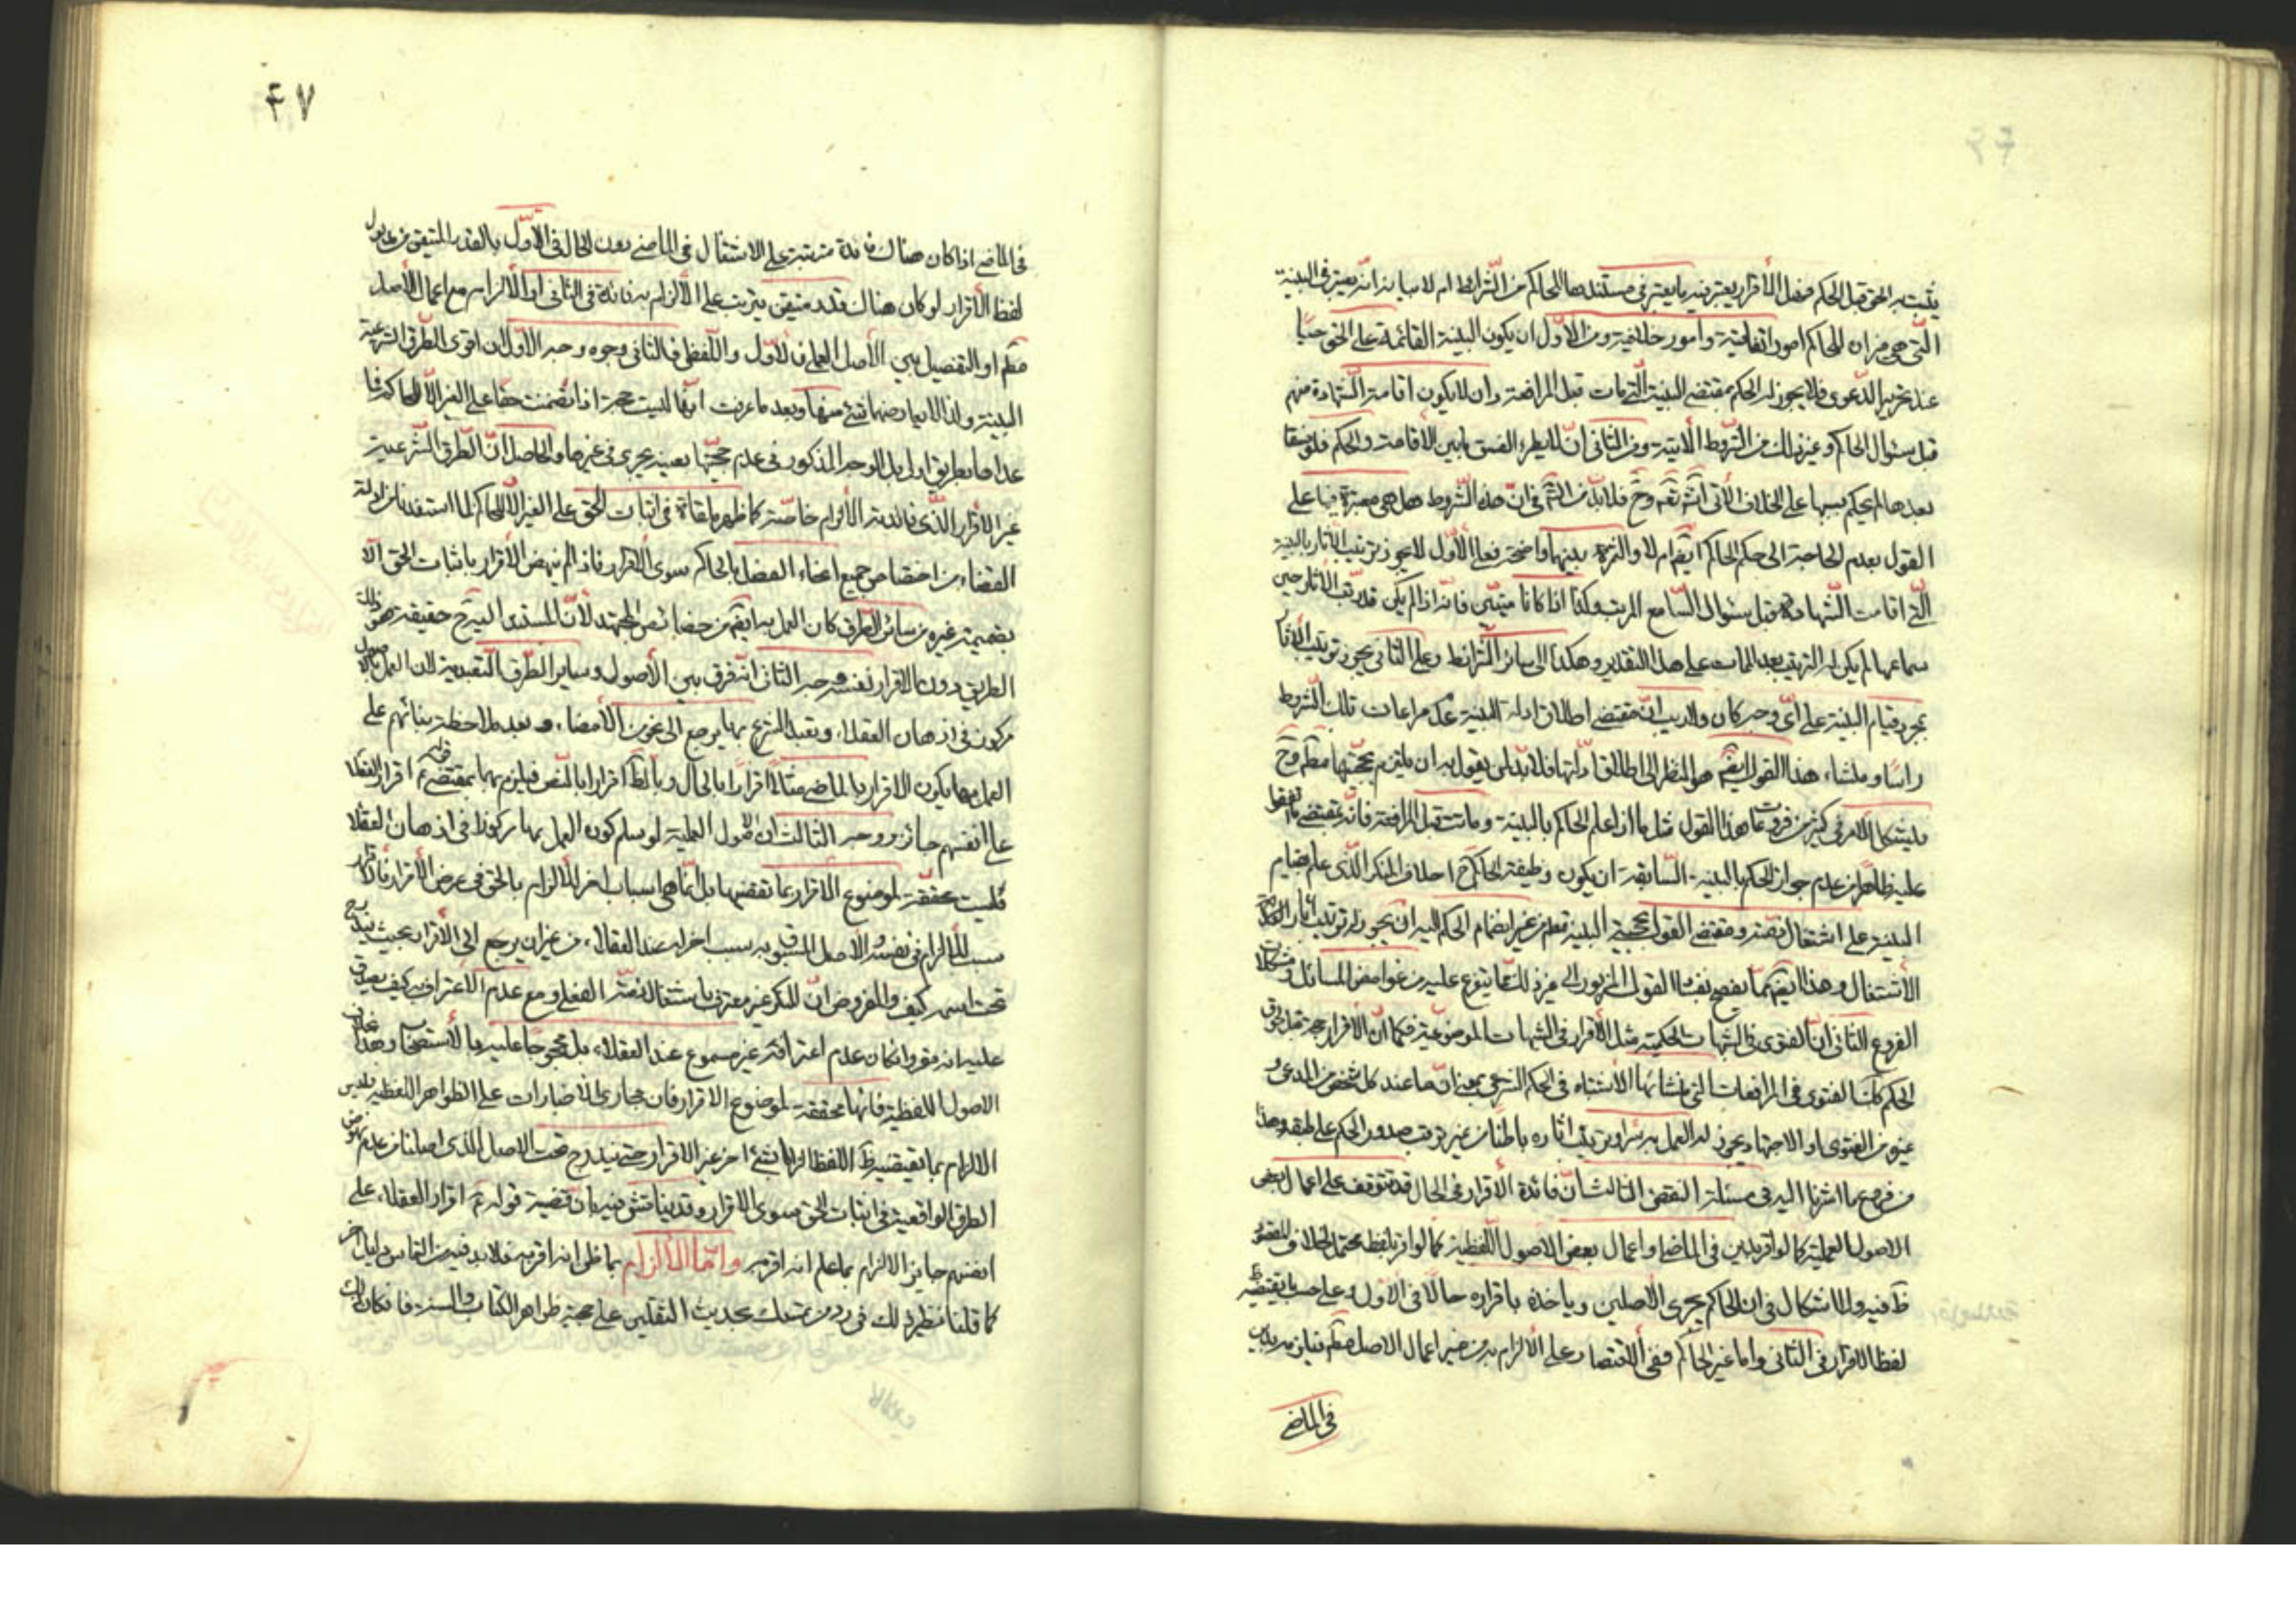 يثبت به الحق قبل الحكم فهل الأقرار يعتبر فيه ما يعتبر في مستندها للحاكم من الشرايط ام لا بيانه انه يعتبر في البينة
التي هي ميزان للحاكم امور اتفاقية وامور خلافية ومن الأول ان يكون البينة القائمة على الحق حيا
عند تحرير الدعوى فلا يجوز له الحكم بمقتضى البينة التي مات قبل المرافعة وان لا يكون اقامة الشهادة منهم
قبل سئوال الحاكم وغير ذلك من الشروط الآتية ومن الثاني ان لا يطرء الفسق ما بين الاقامة والحكم فلو فسقا
بعدها لم يحكم بسببها على الخلاف الآتي انش تعه وح فلا بد من في ان هذه الشروط هل هي معتبرة فيها على
القول بعدم الحاجة الى حكم الحاكم ايضا ام لا والثمرة بينهما واضحة فعلى الأول لا يجوز ترتيب الآثار بالبينة
التي اقامت الشهادة قبل سئوال السامع المرتب وكذا اذا كانا ميتين فانه اذا لم يكن قد رتب الآثار حين
سماعها لم يكن له الترتيب بعد الممات على هذا التقدير وهكذا الى سائر الشرائط وعلى الثاني يجوز ترتيب الآثار
بمجرد قيام البينة على اي وجه كان ولا ريب ان مقتضى اطلاق ادلة البينة عدم مراعات تلك الشروط
راسا ومنشاء هذا القول ايضا هو النظر الى اطلاق ادلتها فلا بد لمن يقول به ان يلتزم بحجيتها مطم وح
فيشكل الأمر في كثير من فروعات هذا القول مثل ما اذا علم الحاكم بالبينة وماتت قبل المرافعة فانه بمقتضى ما اتفقوا
عليه ظاهرا من عدم جواز الحكم بالبينة السابقة ان يكون وظيفة الحاكم ح احلاف المنكر الذي علم بقيام
البينة على اشتغال ذمته ومقتضى القول بحجية البينة مطم من غير انضمام الحكم اليه ان يجوز له ترتيب آثار
الأشتغال وهذا ايضا مما يفصح بفساد القول المزبور الى غير ذلك مما يتفرع عليه من غوامض المسائل ومشكلات
الفروع الثاني ان الفتوى في الشبهات الحكمية مثل الأقرار في الشبهات الموضوعية فكما ان الأقرار حجة قبل لحوق
الحكم كك الفتوى في المرافعات التي منشائها الأشتباه في الحكم الشرعي بمعنى ان ما عند كل شخص من المدعى و
غيره من الفتوى او الاجتهاد يجوز له العمل به سرا وترتيب اثاره باطنا من غير ترتب صدور الحكم على طبقه وهذا
من فروع ما اشرنا اليه في مسئلة النقض الثالث ان فائدة الأقرار في الحال قد تتوقف على اعمال بعض
الاصول العملية كما لو اقر بدين في الماضي واعمال بعض الاصول اللفظية كما لو اقر بلفظ محتمل الخلاف المقصود
ظ فيه ولا اشكال في ان الحاكم يجري الأصلين وياخذه باقراره حالا في الاول وعلى حسب ما يقتضيه
لفظ الاقرار في الثاني واما غير الحاكم ففي الاقتصار على الألزام به من غير اعمال الاصل مطم فيلزمه بدين
في الماضي
٤٧
في الماضي اذا كان هناك فائدة مترتبة على الاشتغال في الماضي دون الحال في الأول بالقدر المتيقن من مدلول
لفظ الأقرار لو كان هناك قدر متيقن يترتب على الألزام به فائدة في الثاني او الألزام به مع اعمال الأصل
مطم او التفصيل بين الأصل العملي في الأول واللفظي في الثاني وجوه وجه الأول ان اقوى الطرق الشرعية
البينة ولذا لا يعارضها شيء منها وبعد ما عرفت انها ليست حجة اذا تضمنت حقا على الغير الا للحاكم فما
عداها بطريق اولى بل الوجه المذكور في عدم حجيتها بعينه يجري في غيرها والحاصل ان الطرق الشرعية
غير الأقرار الذي فائدته الألزام خاصة كما ظهر ملقاة في اثبات الحق على الغير الا للحاكم لما استفدنا من ادلة
القضاء من اختصاص جميع انحاء الفصل بالحاكم سوى الأقرار فاذا لم ينهض الأقرار باثبات الحق الا
بضميمة غيره من سائر الطرق كان العمل به ايضا من خصائص المجتهد لأن المستند اليه ح حقيقة هو ذلك
الطريق دون الاقرار نفسه وجه الثاني انه فرق بين الأصول وسائر الطرق التعبدية لان العمل بالاصول
مركوز في اذهان العقلاء وتعبد الشرع بها يرجع الى نحو من الأمضاء وبعد ملاحظة بنائهم على
العمل بها يكون الاقرار بالماضي مثلا اقرارا بالحال وبالظ اقرارا بالنص فيلزم بهما بمقتضى قوله ع اقرار العقلاء
على انفسهم جائز ووجه الثالث ان الاصول العملية لو سلم كون العمل بها مركوزا في اذهان العقلاء
فليست محققة لموضوع الاقرار بما تقتضيها بل انما هي اسباب اخر للألزام بالحق في عرض الأقرار فالاقرار
سبب للألزام في نفسه والاصل المسبوق به سبب اخر له عند العقلاء من غير ان يرجع الى الأقرار بحيث يندرج
تحت اسمه كيف والمفروض ان المنكر غير معترف باشتغال ذمته الفعلي ومع عدم الاعتراف به كيف يصدق
عليه انه مقر وان كان عدم اعترافه غير مسموع عند العقلاء بل محجوجا عليه بالأستصحاب وهذا بخلاف
الاصول اللفظية فانها محققة لموضوع الاقرار فان مجاري الاخبارات على الظواهر اللفظية فليس
الالزام بما يقتضيه ظ اللفظ الزاما بشيء اخر غير الاقرار حتى يندرج تحت الاصل الذي اصلنا من عدم نهوض
الطرق الواقعية في اثبات الحق سوى الاقرار وقد يناقش فيه بان قضية قوله ع اقرار العقلاء على
انفسهم جايز الالزام بما علم انه اقر به واما الالزام بما ظن انه اقر به فلا بد فيه من التماس دليل اخر
كما قلنا نظير ذلك في رد من تمسك بحديث الثقلين على حجية ظواهر الكتاب والسنة فان كان